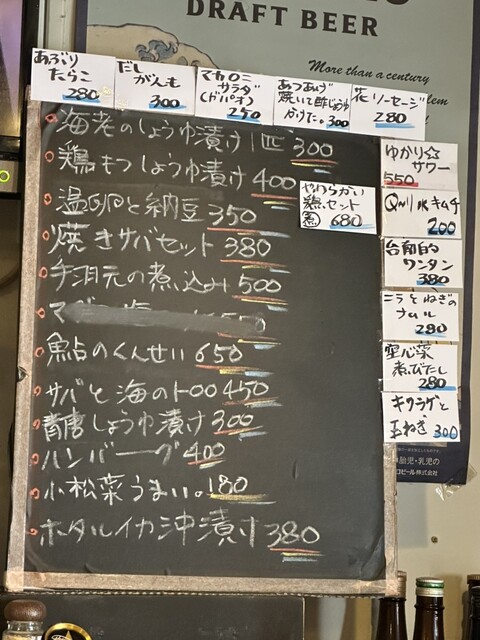 DRAFT BEER
More than a century
あぶり
たらこ
280
だし
がんも
300
マカロニ
サラダ
250
あつあげ
焼いて酢じょうゆ
かけた。300
花ソーセージ
280
海老のしょうゆ漬け1匹300
鶏もつしょうゆ漬け400
温玉と納豆350
焼きサバセット380
手羽元の煮込み500
鮎のくんせい650
サバと海のトロロ450
青唐しょうゆ漬け300
ハンバーグ400
小松菜うまい。180
ホタルイカ沖漬け380
やわらかい
鶏セット
680
ゆかり☆
サワー
550
Qちゃんキムチ
200
台南的
ワンタン
380
ニラとねぎの
ナムル
280
空心菜
煮びたし
280
キクラゲと
玉ねぎ300
胎児・乳児の
ロビール株式会社